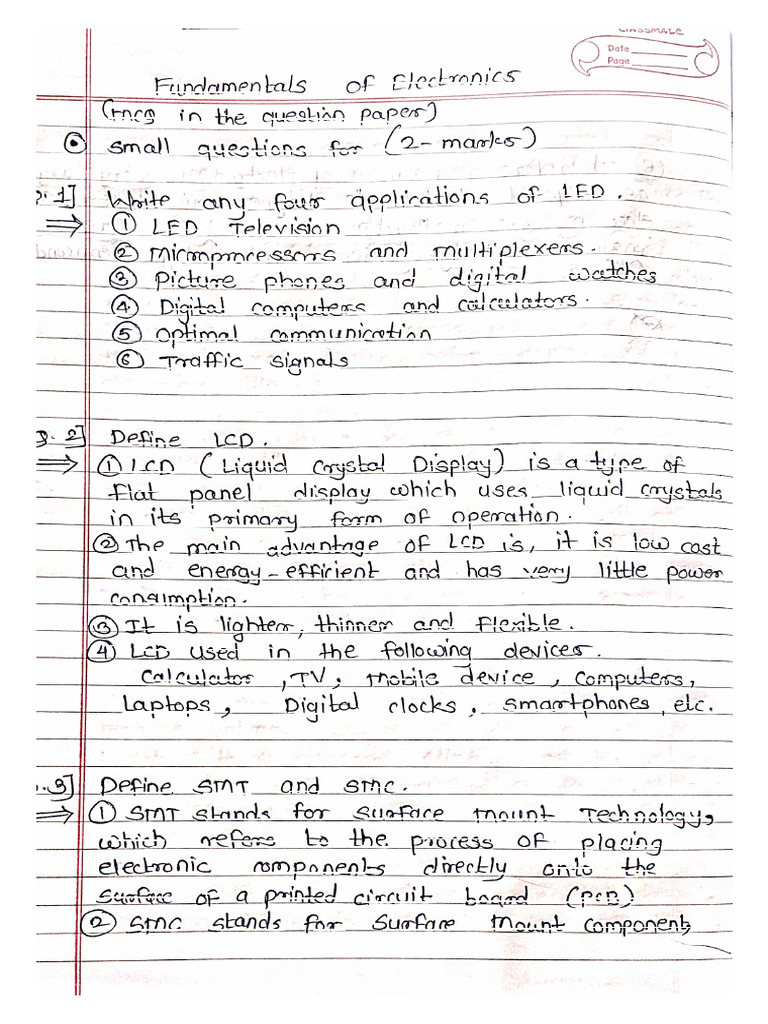 CLASSMATE
Date
Page
Fundamentals of Electronics
in the question paper)
small questions for (2-marks)
1] Write any four applications of LED.
⇒ ① LED Television
② Microprocessors and multiplexers.
③ Picture phones and digital watches
④ Digital computers and calculators.
⑤ Optimal communication
⑥ Traffic signals
2] Define LCD.
⇒ ① LCD (Liquid Crystal Display) is a type of
flat panel display which uses liquid crystals
in its primary form of operation.
② The main advantage of LCD is, it is low cost
and energy-efficient and has very little power
consimption.
③ It is lighter, thinner and flexible.
④ LCD used in the following devices.
Calculator, TV, mobile device, computers,
Laptops, Digital clocks, smartphones, etc.
.3] Define SMT and SMC.
⇒ ① SMT stands for surface mount Technology,
which refers to the process of placing
electronic components directly onto the
surface of a printed circuit board (PCB)
② SMC stands for Surface Mount Component,